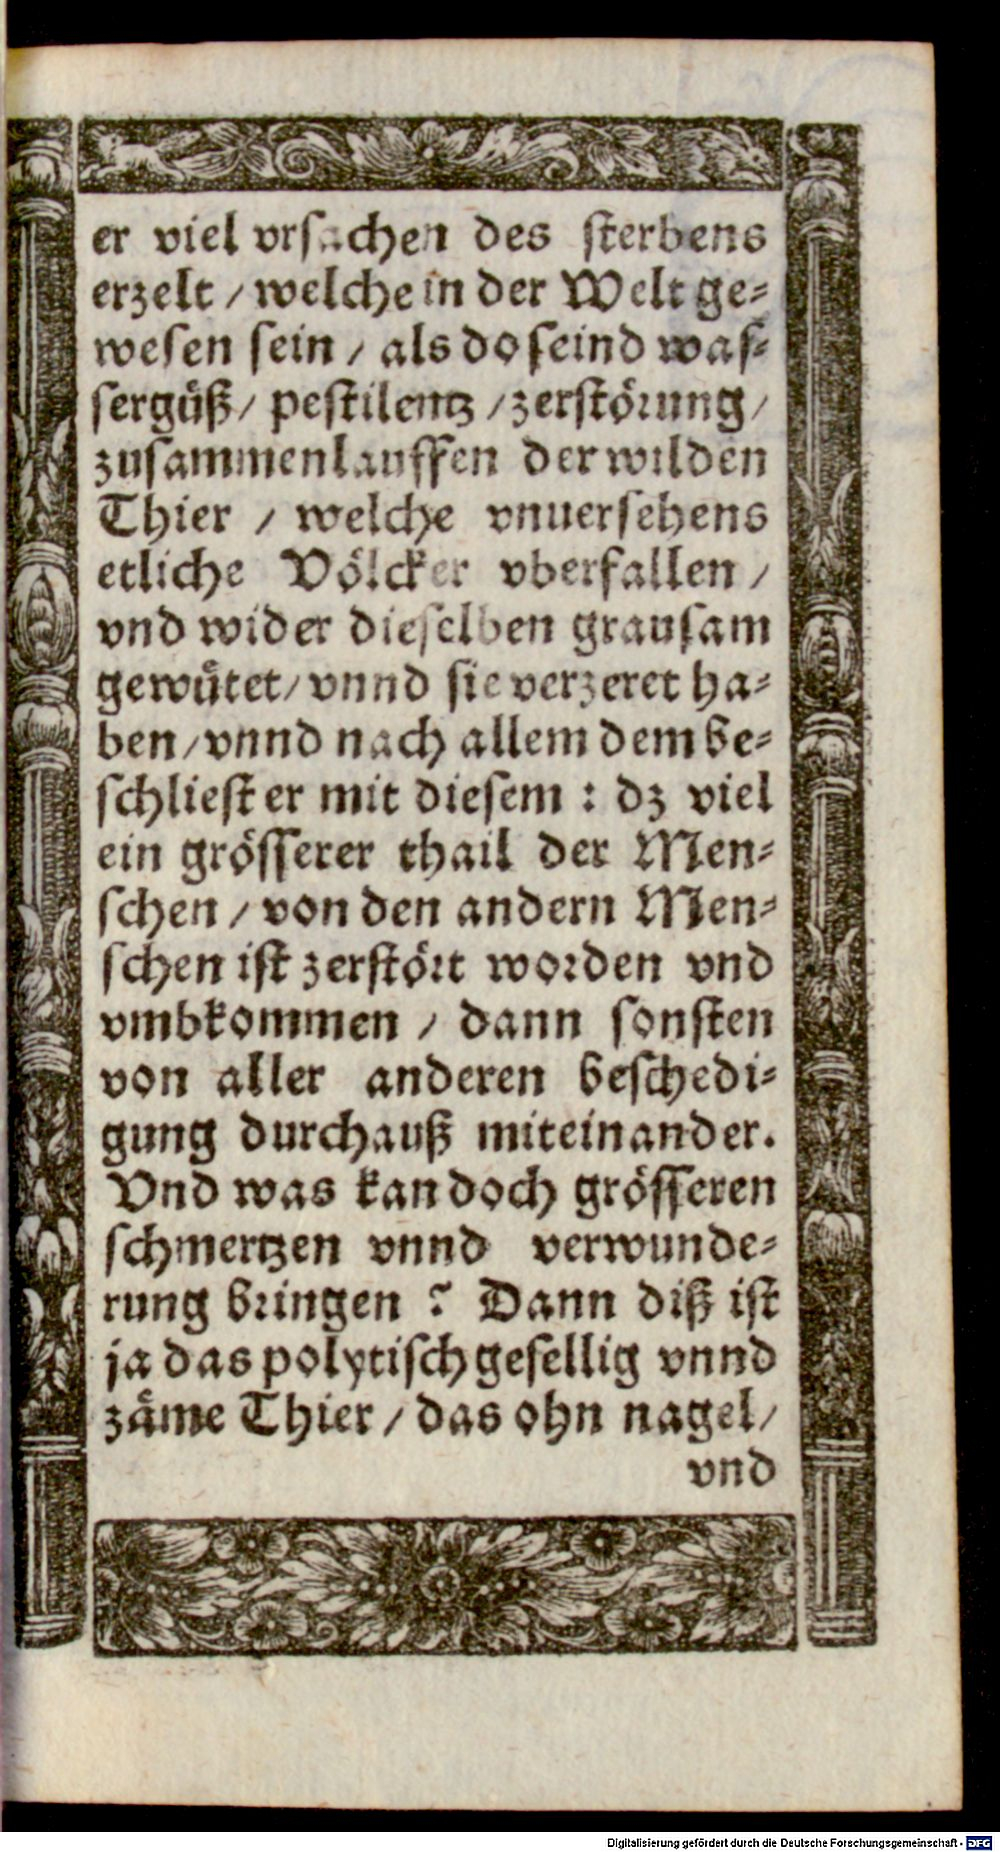 er viel vrsachen des sterbens
erzelt / welche in der Welt ge⸗
wesen sein / als do seind was⸗
sergüß / pestilentz / zerstörung /
zusammenlauffen der wilden
Thier / welche vnuersehens
etliche Völcker vberfallen /
vnd wider dieselben grausam
gewütet / vnnd sie verzeret ha⸗
ben / vnnd nach allem dem be⸗
schliest er mit diesem : dz viel
ein grösserer thail der Men⸗
schen / von den andern Men⸗
schen ist zerstört worden vnd
vmbkommen / dann sonsten
von aller anderen beschedi⸗
gung durchauß miteinander.
Vnd was kan doch grösseren
schmertzen vnnd verwunde⸗
rung bringen ? Dann diß ist
ja das polytisch gesellig vnnd
zäme Thier / das ohn nagel /
vnd
Digitalisierung gefördert durch die Deutsche Forschungsgemeinschaft - DFG